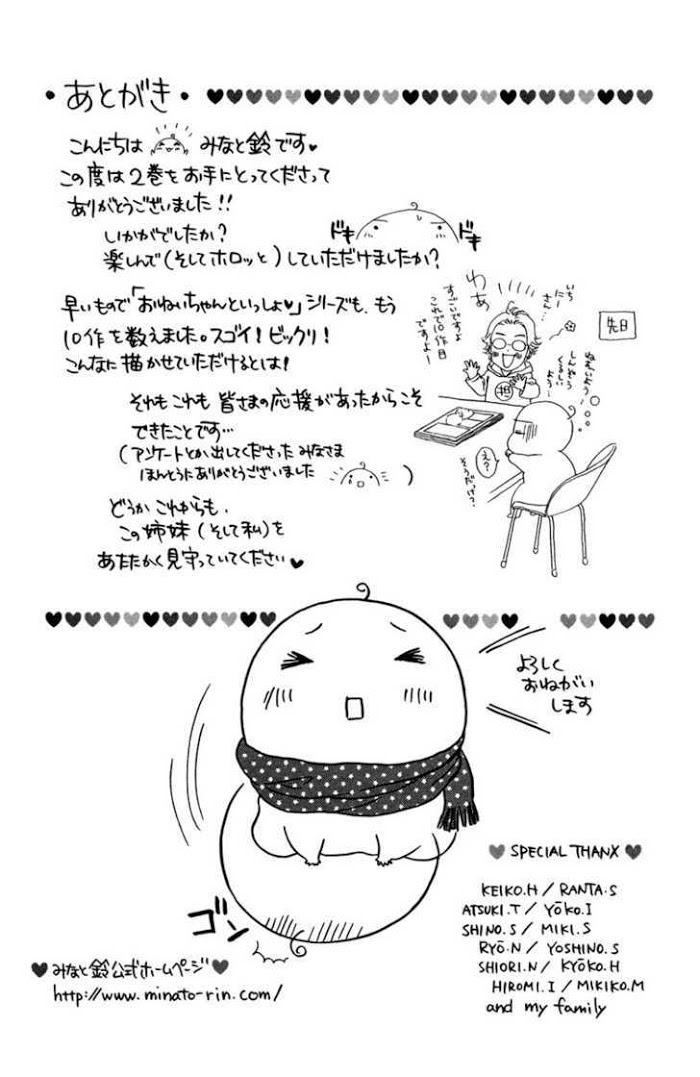 ・あとがき・
こんにちは みなと鈴です♥
この度は2巻をお手にとってくださって
ありがとうございました!!
いかがでしたか?
ドキ ドキ
楽しんで(そしてホロッと)していただけましたか?
早いもので「おねいちゃんといっしょ♥」シリーズも、もう
10作を数えました。スゴイ!ビックリ!
こんなに描かせていただけるとは!
それもこれも皆さまの応援があったからこそ
できたことです…
(アンケートとか出してくださったみなさま
ほんとうにありがとうございました )
どうかこれからも、
この姉妹(そして私)を
あたたかく見守っていてください♥
先日
いち
にー
さん…
わぁ
すごいですよ
これで10作目
ですよー
担
ねむいよう…
しんぞう
くるしい
よう…
え?
そうだっけ?
よろしく
おねがい
します
ゴン
♥ SPECIAL THANX ♥
KEIKO.H / RANTA.S
ATSUKI.T / YŌKO.I
SHINO.S / MIKI.S
RYŌ.N / YOSHINO.S
SHIORI.N / KYŌKO.H
HIROMI.I / MIKIKO.M
and my family
♥みなと鈴公式ホームページ♥
http://www.minato-rin.com/